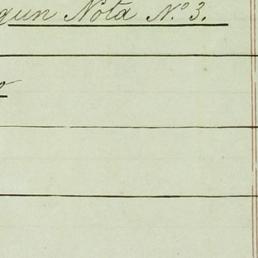 gun Nota N.º 3.
o